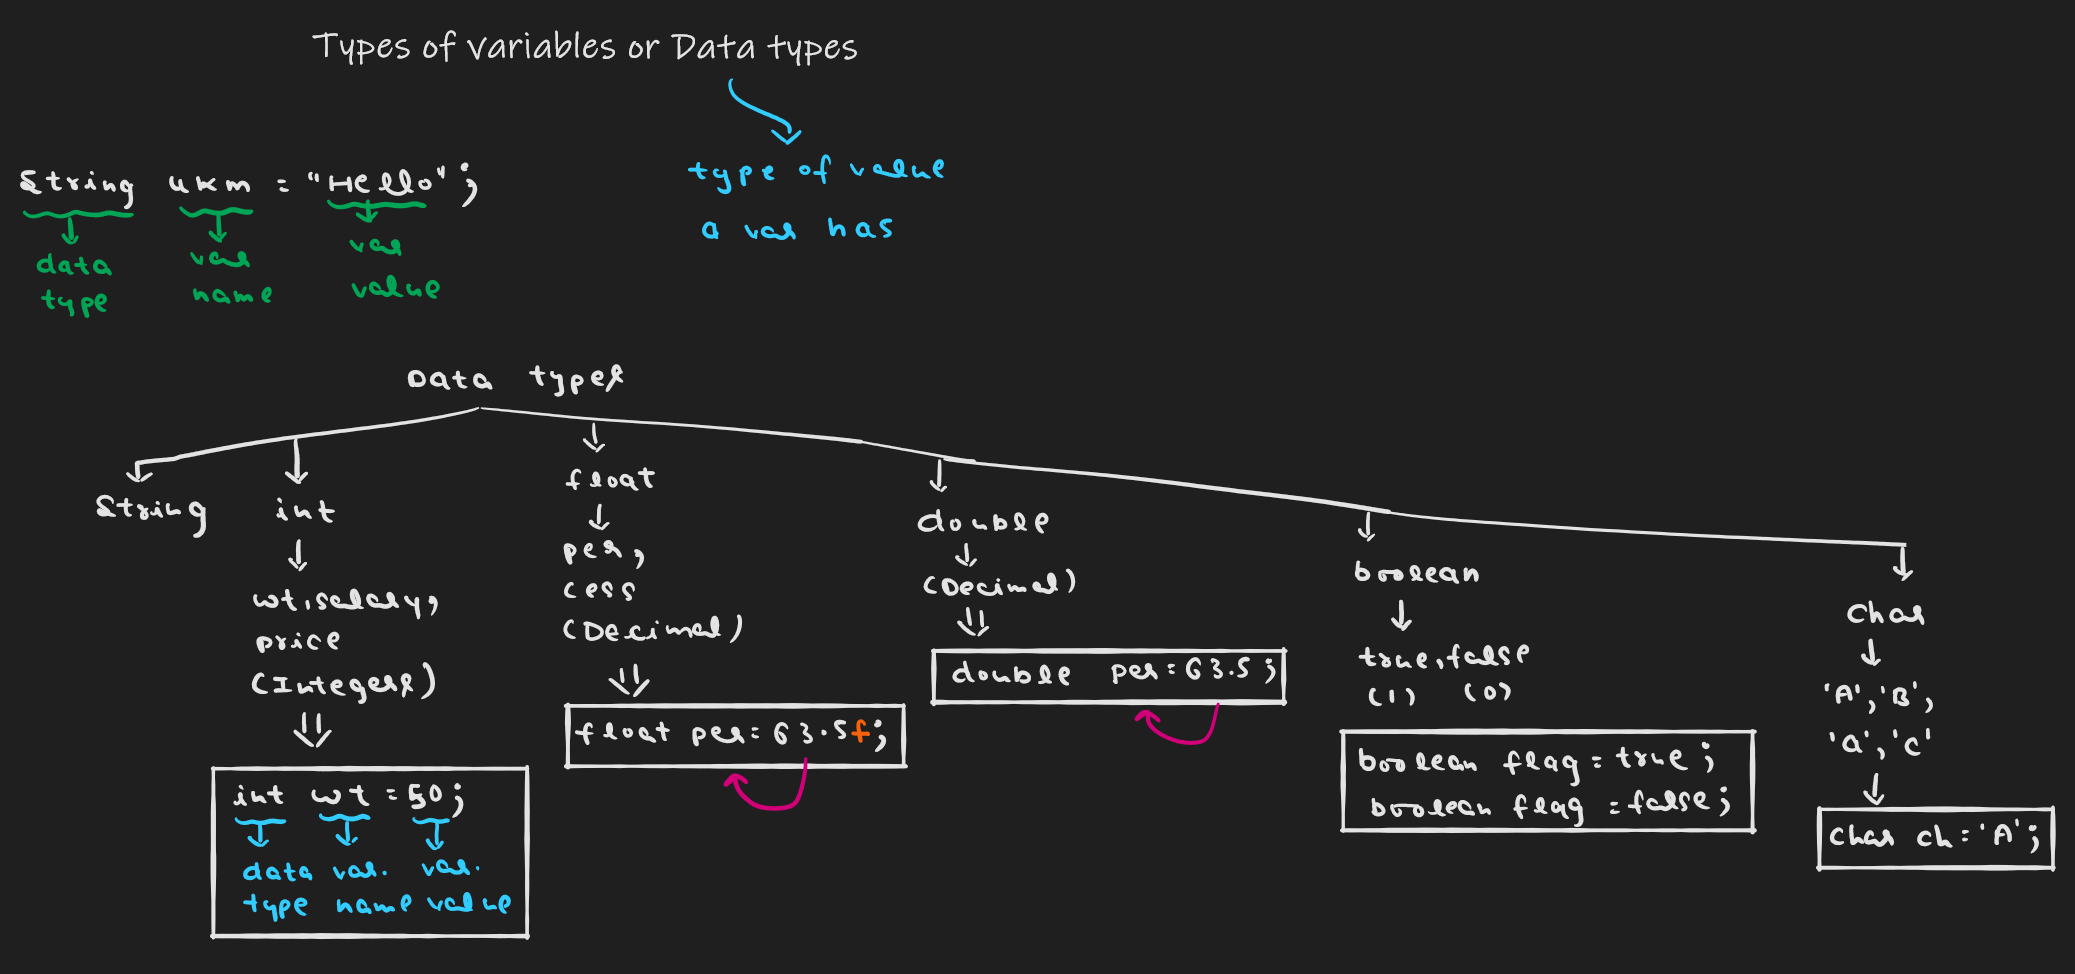 Types of variables or Data types
type of value
a var has
String ukm = "Hello";
data type
var name
var value
Data types
String
int
wt, salary,
price
(Integers)
int wt = 50;
data type
var. name
var. value
float
per,
cess
(Decimal)
float per = 63.5f;
double
(Decimal)
double per = 63.5;
boolean
true, false
(1) (0)
boolean flag = true;
boolean flag = false;
char
'A', 'B',
'a', 'c'
char ch = 'A';